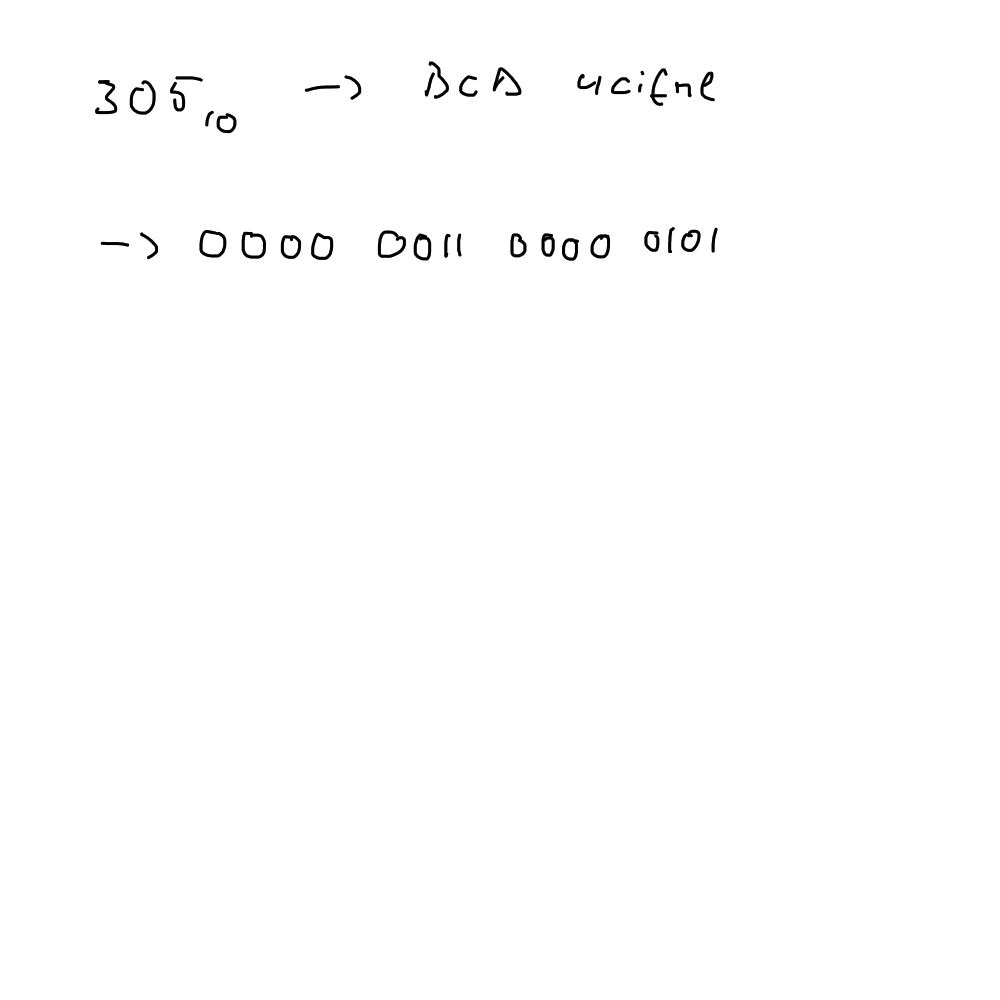 305₁₀ -> BCD 4cifre
-> 0000 0011 0000 0101